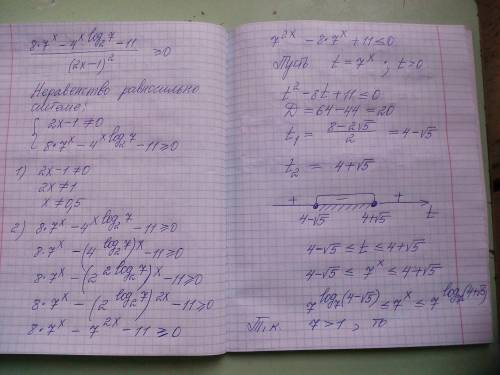 8·7^x − 4^(x log₂7) − 11
――――――――― ≥ 0
(2x−1)²
Неравенство равносильно
системе:
{ 2x−1 ≠ 0
{ 8·7^x − 4^(x log₂7) − 11 ≥ 0
1) 2x−1 ≠ 0
2x ≠ 1
x ≠ 0,5
2) 8·7^x − 4^(x log₂7) − 11 ≥ 0
8·7^x − (4^(log₂7))^x − 11 ≥ 0
8·7^x − (2^(2 log₂7))^x − 11 ≥ 0
8·7^x − (2^(log₂7))^(2x) − 11 ≥ 0
8·7^x − 7^(2x) − 11 ≥ 0
7^(2x) − 8·7^x + 11 ≤ 0
Пусть t = 7^x ; t > 0
t² − 8t + 11 ≤ 0
D = 64 − 44 = 20
t₁ = (8 − 2√5)/2 = 4 − √5
t₂ = 4 + √5
+ − +
4−√5 4+√5 t
4 − √5 ≤ t ≤ 4 + √5
4 − √5 ≤ 7^x ≤ 4 + √5
7^(log₇(4−√5)) ≤ 7^x ≤ 7^(log₇(4+√5))
Т.к. 7 > 1, то